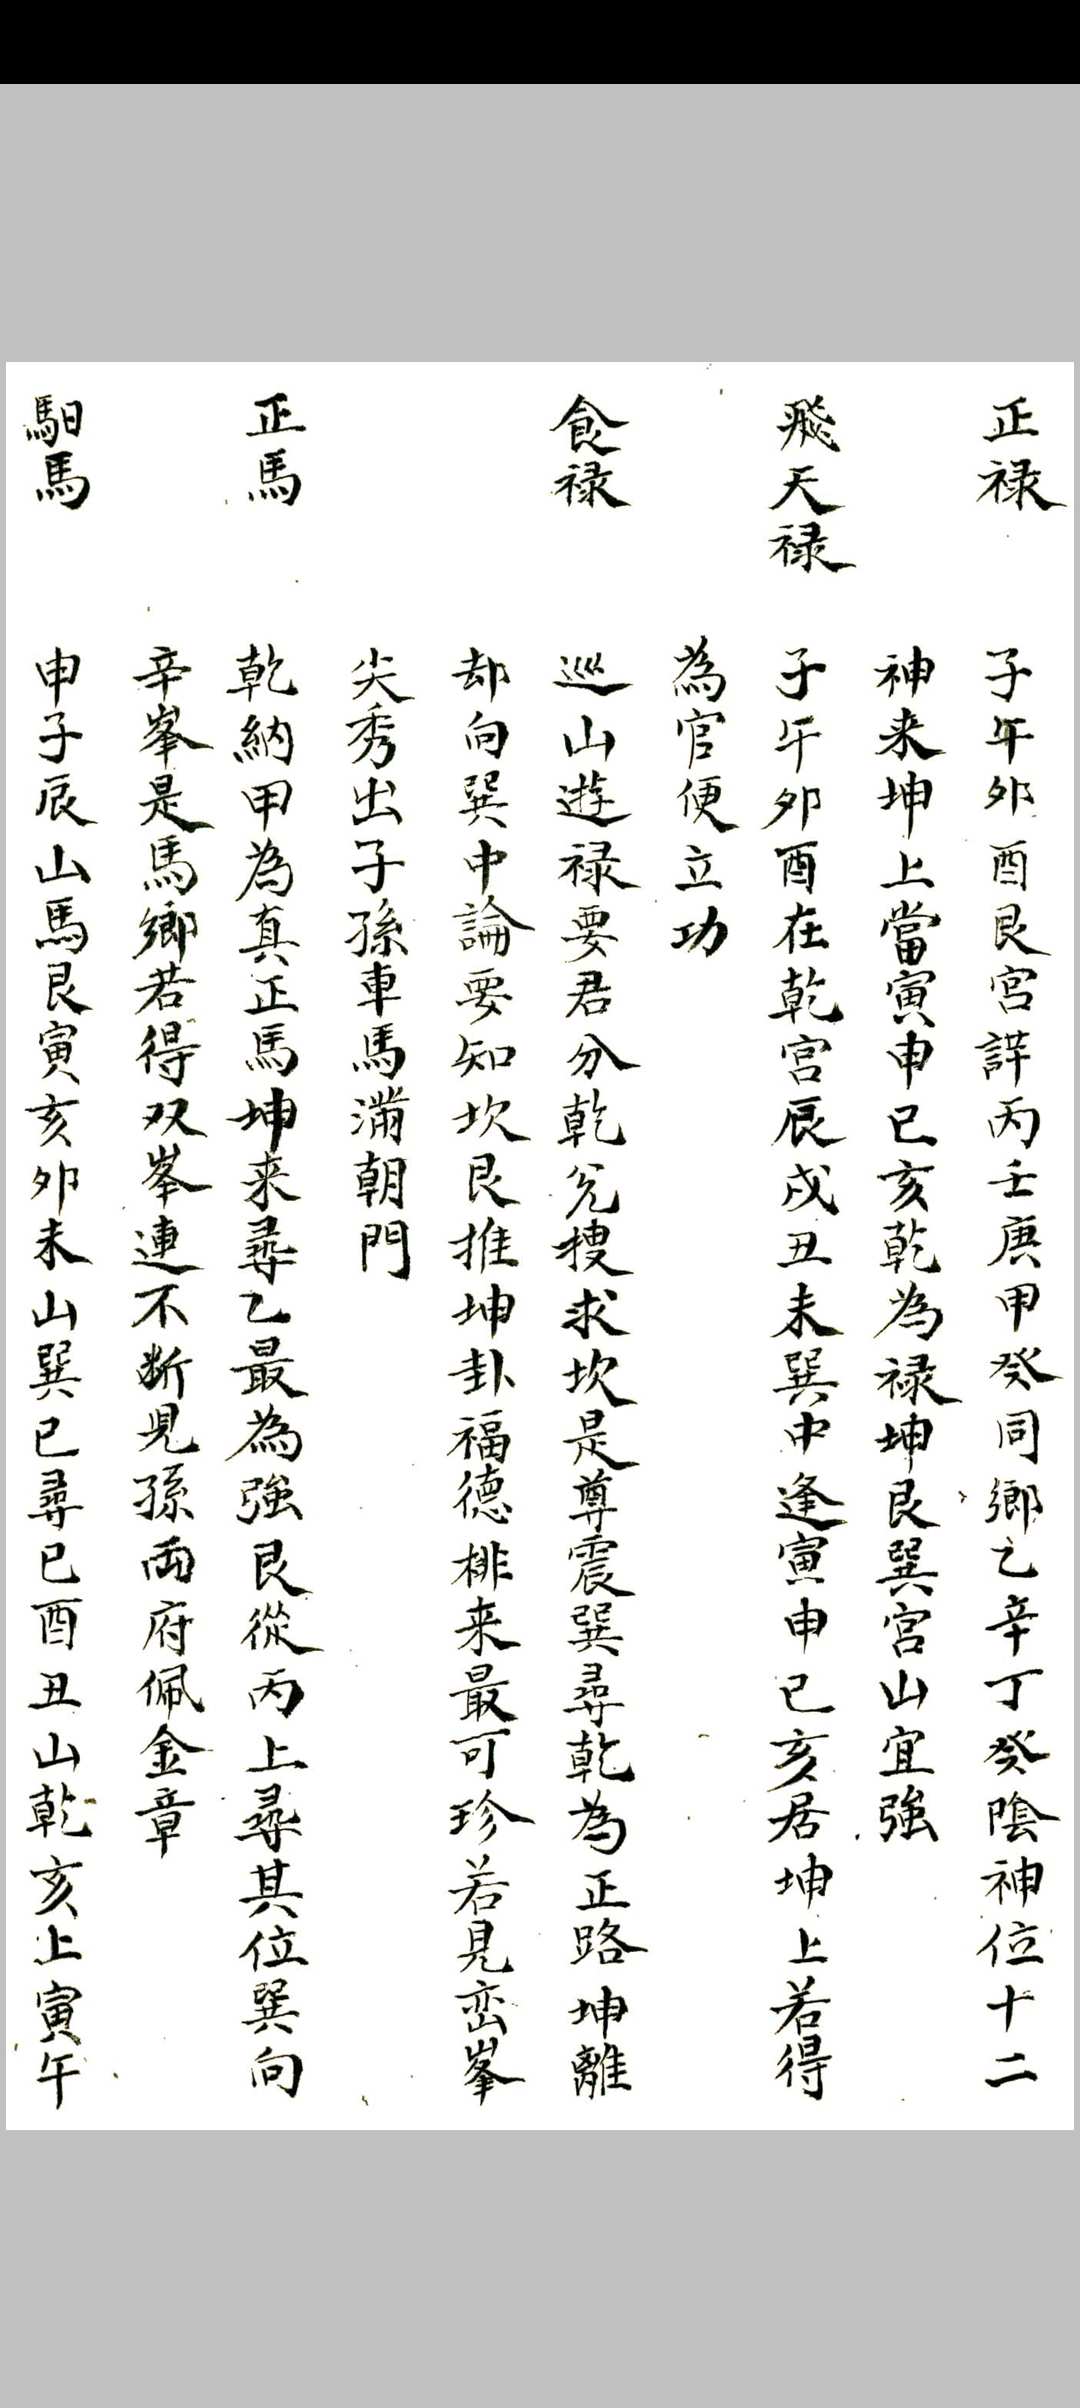 正禄 子午卯酉艮宮詳丙壬庚甲癸同鄉乙辛丁癸陰神位十二
神来坤上當寅申巳亥乾為禄坤艮巽宮山宜強
飛天禄 子午卯酉在乾宮辰戌丑未巽中逢寅申巳亥居坤上若得
為官便立功
食禄 巡山遊禄要君分乾兊搜求坎是尊震巽尋乾為正路坤離
却向巽中論要知坎艮推坤卦福德排来最可珍若見峦峯
尖秀出子孫車馬滿朝門
正馬 乾納甲為真正馬坤来尋乙最為強艮從丙上尋其位巽向
辛峯是馬鄉若得双峯連不断児孫両府佩金章
馹馬 申子辰山馬艮寅亥卯未山巽巳尋巳酉丑山乾亥上寅午